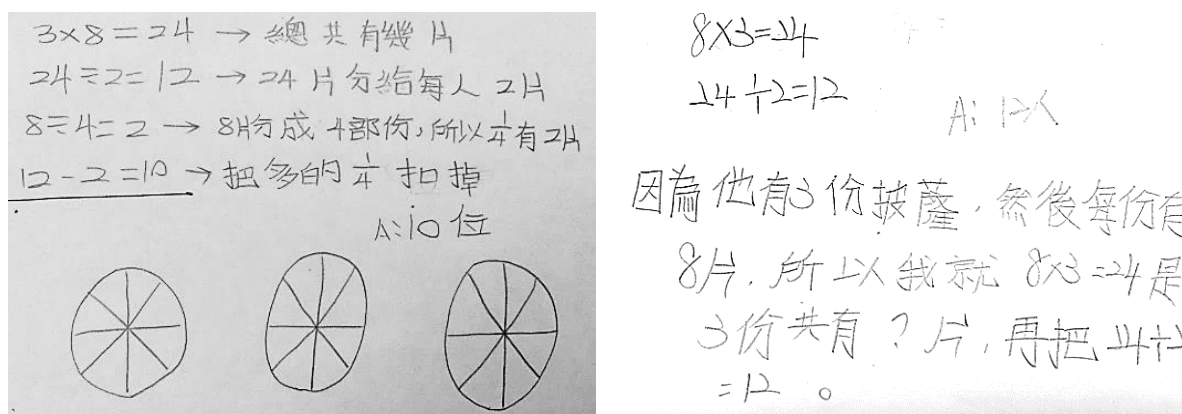 3×8=24 → 總共有幾片
24÷2=12 → 24片分給每人2片
8÷4=2 → 8片分成4部份,所以1/4有2片
12-2=10 → 把多的1/4扣掉
A:10位
8×3=24
24÷2=12
A:12人
因為他有3份披薩,然後每份有
8片,所以我就8×3=24是
3份共有?片,再把24÷2
=12。